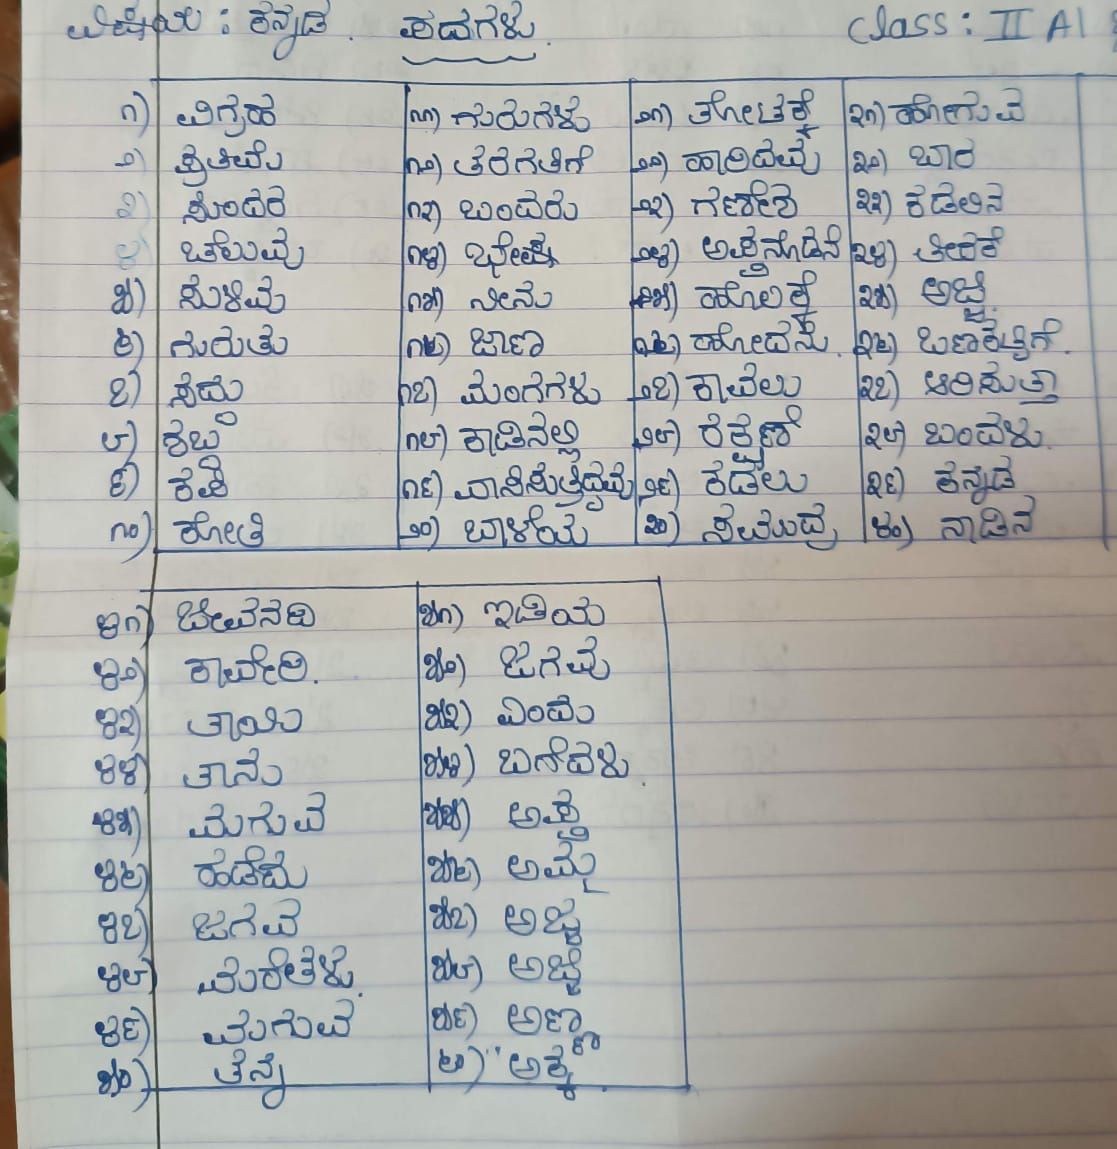 ವಿಷಯ : ಕನ್ನಡ. ಪದಗಳು. Class: II A1
೧) ವಿಗ್ರಹ ೧೧) ಗುರುಗಳು ೨೧) ತೋಟಕ್ಕೆ ೩೧) ಹೋಗುವ
೨) ಪ್ರತಿಮೆ ೧೨) ತರಗತಿಗೆ ೨೨) ಹಾರಿದವು ೩೨) ಬಾರ
೩) ಸುಂದರ ೧೩) ಬಂದರು ೨೩) ಗಣೇಶ ೩೩) ಕಡಲಿನ
೪) ಚೆಲುವು ೧೪) ಭೇಷ್ ೨೪) ಅಪ್ಪನೊಡನೆ ೩೪) ತೀರಕೆ
೫) ಸುಳಿವು ೧೫) ನೀನು ೨೫) ಹೊಲಕ್ಕೆ ೩೫) ಅಜ್ಜಿ.
೬) ಗುರುತು ೧೬) ಜಾಣ ೨೬) ಹೋದನು. ೩೬) ಒಣಹುಲ್ಲಿಗೆ.
೭) ಸದ್ದು ೧೭) ಮಂಗಗಳು ೨೭) ಕಾವಲು ೩೭) ಆರಿಸುತ್ತಾ
೮) ಶಬ್ದ ೧೮) ಕಾಡಿನಲ್ಲಿ ೨೮) ೩೮) ಬಂದಳು.
೯) ಕಪಿ ೧೯) ವಾಸಿಸುತ್ತಿದ್ದವು ೨೯) ಕಡಲು ೩೯) ಕನ್ನಡ
೧೦) ಕೋತಿ ೨೦) ಬಾಳೆಯ ೩೦) ಸಮುದ್ರ ೪೦) ನಾಡಿನ
೪೧) ಜೀವನದಿ ೫೧) ಇಡಿಯ
೪೨) ಕಾವೇರಿ. ೫೨) ಜಗವು
೪೩) ತಾಯಿ ೫೩) ಎಂದು
೪೪) ತಾನು ೫೪) ಬಗೆದಳು.
೪೫) ಮಗುವ ೫೫) ಅಪ್ಪ
೪೬) ಹಡೆದು ೫೬) ಅಮ್ಮ
೪೭) ಜಗವ ೫೭) ಅಜ್ಜ
೪೮) ಮರೆತಳು. ೫೮) ಅಜ್ಜಿ
೪೯) ಮಗುವೆ ೫೯) ಅಣ್ಣ
೫೦) ತನ್ನ ೬೦) ಅಕ್ಕ